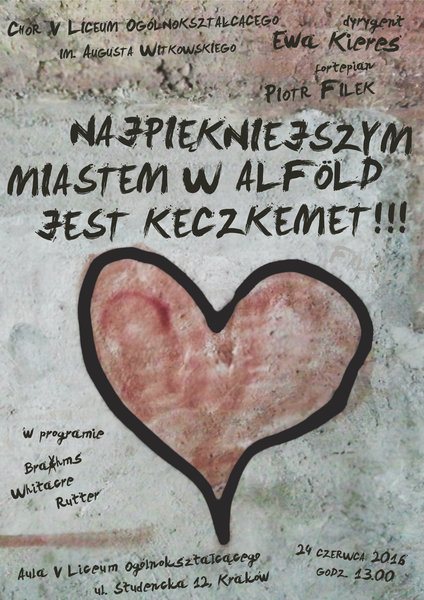 Chór V Liceum Ogólnokształcącego
im. Augusta Witkowskiego
dyrygent
Ewa Kieres
fortepian
Piotr Filek
NAJPIĘKNIEJSZYM
MIASTEM W ALFÖLD
JEST KECZKEMET!!!
w programie
Brahms
Whitacre
Rutter
Aula V Liceum Ogólnokształcącego
ul. Studencka 12, Kraków
24 czerwca 2016
godz. 13.00